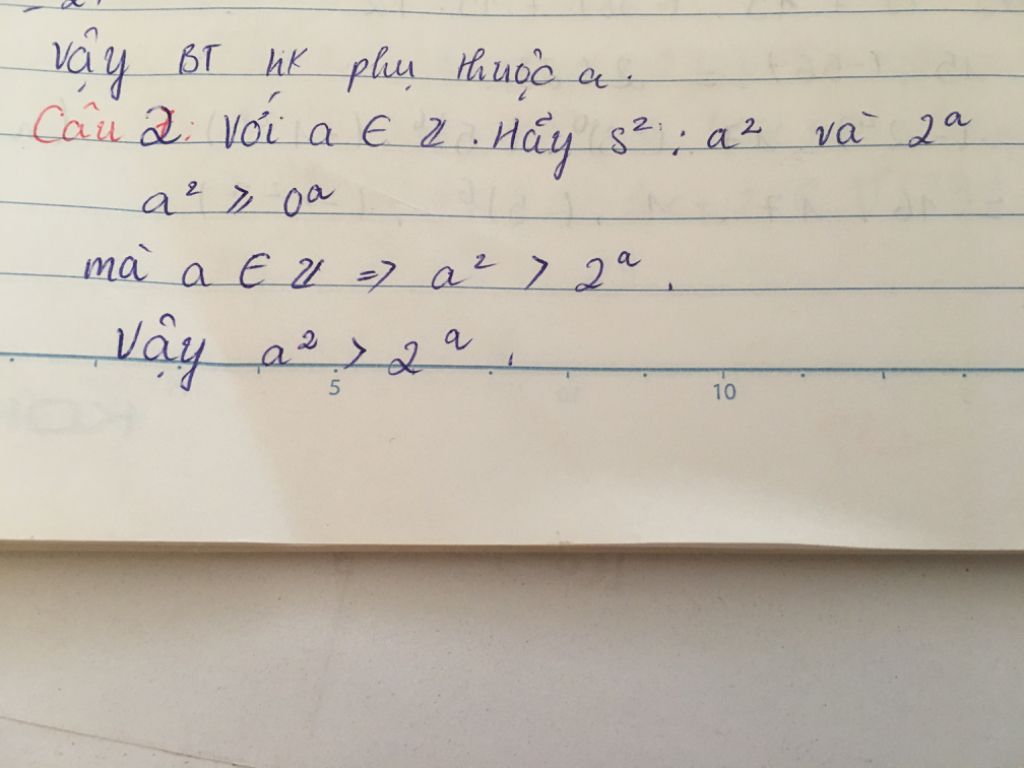 Vậy BT hK phụ thuộc a.
Câu 2: Với a ∈ Z. Hãy s²: a² và 2ᵃ
a² ≥ 0ᵃ
mà a ∈ Z => a² > 2ᵃ.
Vậy a² > 2ᵃ.
5 10